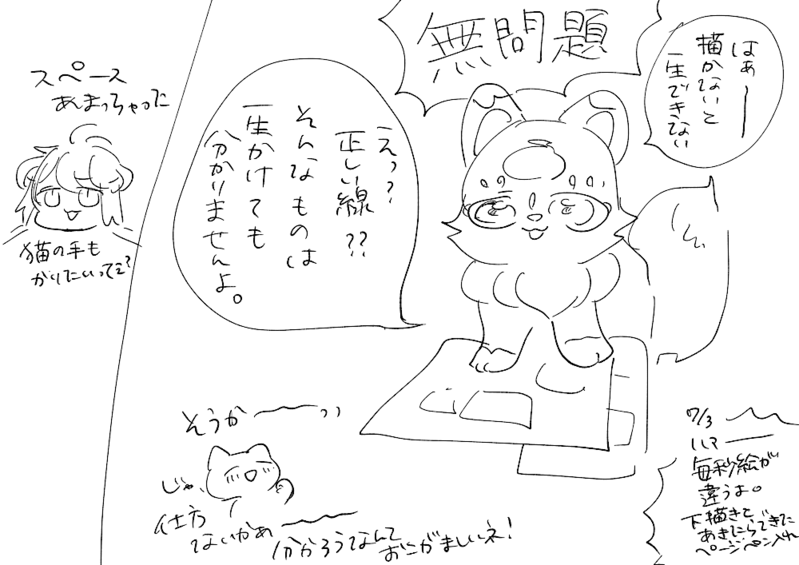 無問題
はぁー
描かないと
一生できない
えっ?
正しい線??
そんなものは
一生かけても
分かりませんよ。
スペース
あまっちゃった
猫の手も
かりたいってェ?
そうかーっっ
じゃ、
仕方
ないかぁー
分かろうなんて
おこがましいネ!
7/3
毎秒絵が
違うよ。
下描きと
あきたらできた
ページペン入れ